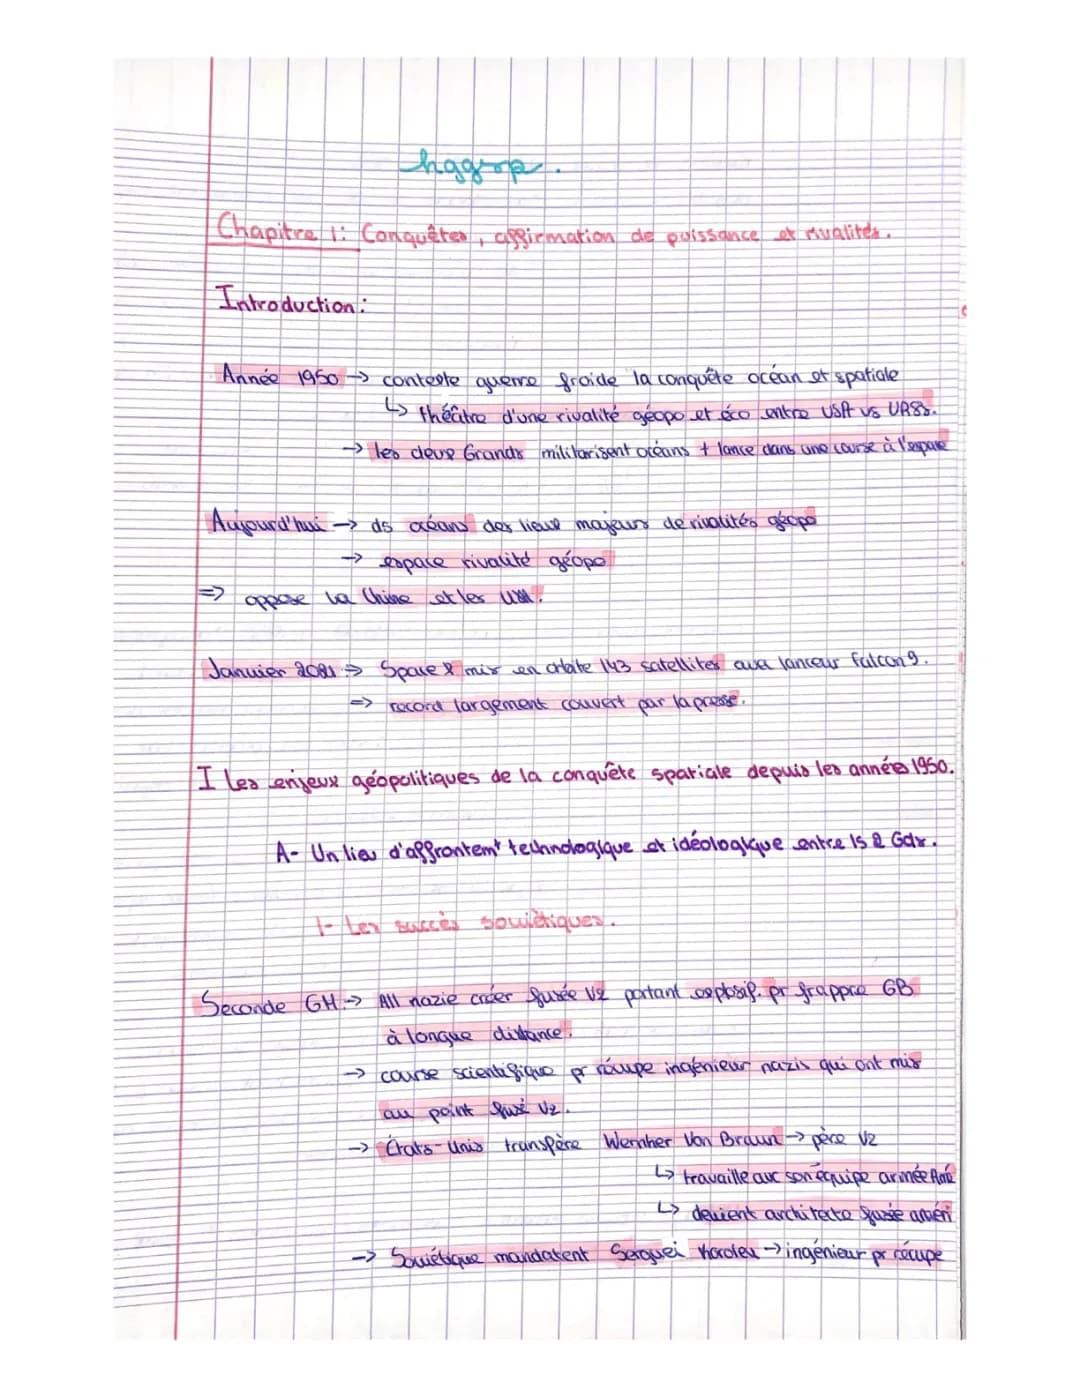 hggsp.
Chapitre 1: Conquêtes, affirmation de puissance et rivalités.
Introduction:
Année 1950 → contexte guerre froide la conquête océan et spatiale
↳ théâtre d'une rivalité géopo et éco entre USA vs URSS.
→ les deux Grands militarisent océans + lance dans une course à l'espace
Aujourd'hui → ds océans des lieux majeurs de rivalités géopo
→ espace rivalité géopo
⇒ oppose la Chine et les USA.
Janvier 2021 ⇒ Space X mis en orbite 143 satellites avec lanceur falcon 9.
⇒ record largement couvert par la presse.
I les enjeux géopolitiques de la conquête spatiale depuis les années 1950.
A- Un lieu d'affrontemt technologique et idéologique entre ls 2 Gds.
1- Les succès soviétiques.
Seconde GM → All nazie créer fusée V2 portant explosif. pr frappre GB
à longue distance.
→ course scientifique pr récupe ingénieur nazis qui ont mis
au point fusé V2.
→ États-Unis transfère Wernher Von Braun → père V2
↳ travaille avc son équipe armée Amé
↳ devient architecte fusée améri
→ Soviétique mandatent Serguei Korolev → ingénieur pr récupe